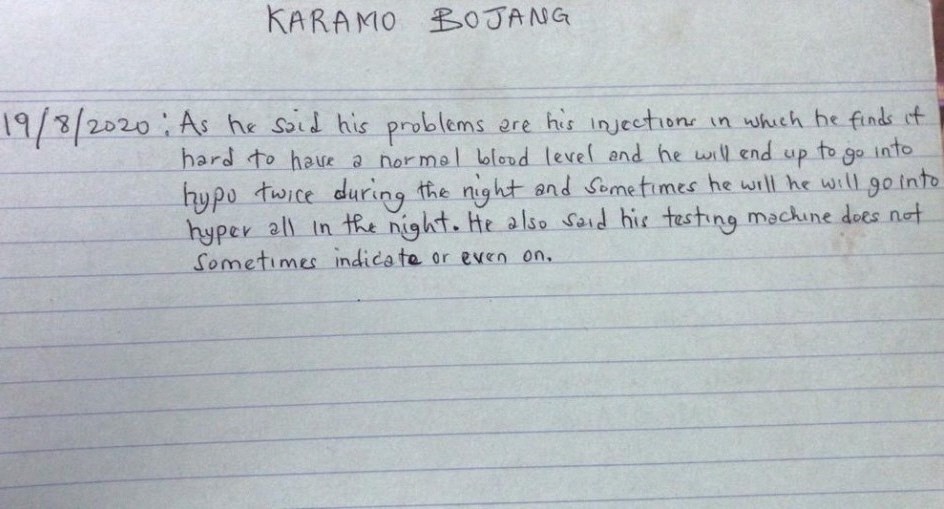 KARAMO BOJANG
19/8/2020: As he said his problems are his injections in which he finds it
hard to have a normal blood level and he will end up to go into
hypo twice during the night and sometimes he will he will go into
hyper all in the night. He also said his testing machine does not
sometimes indicate or even on.